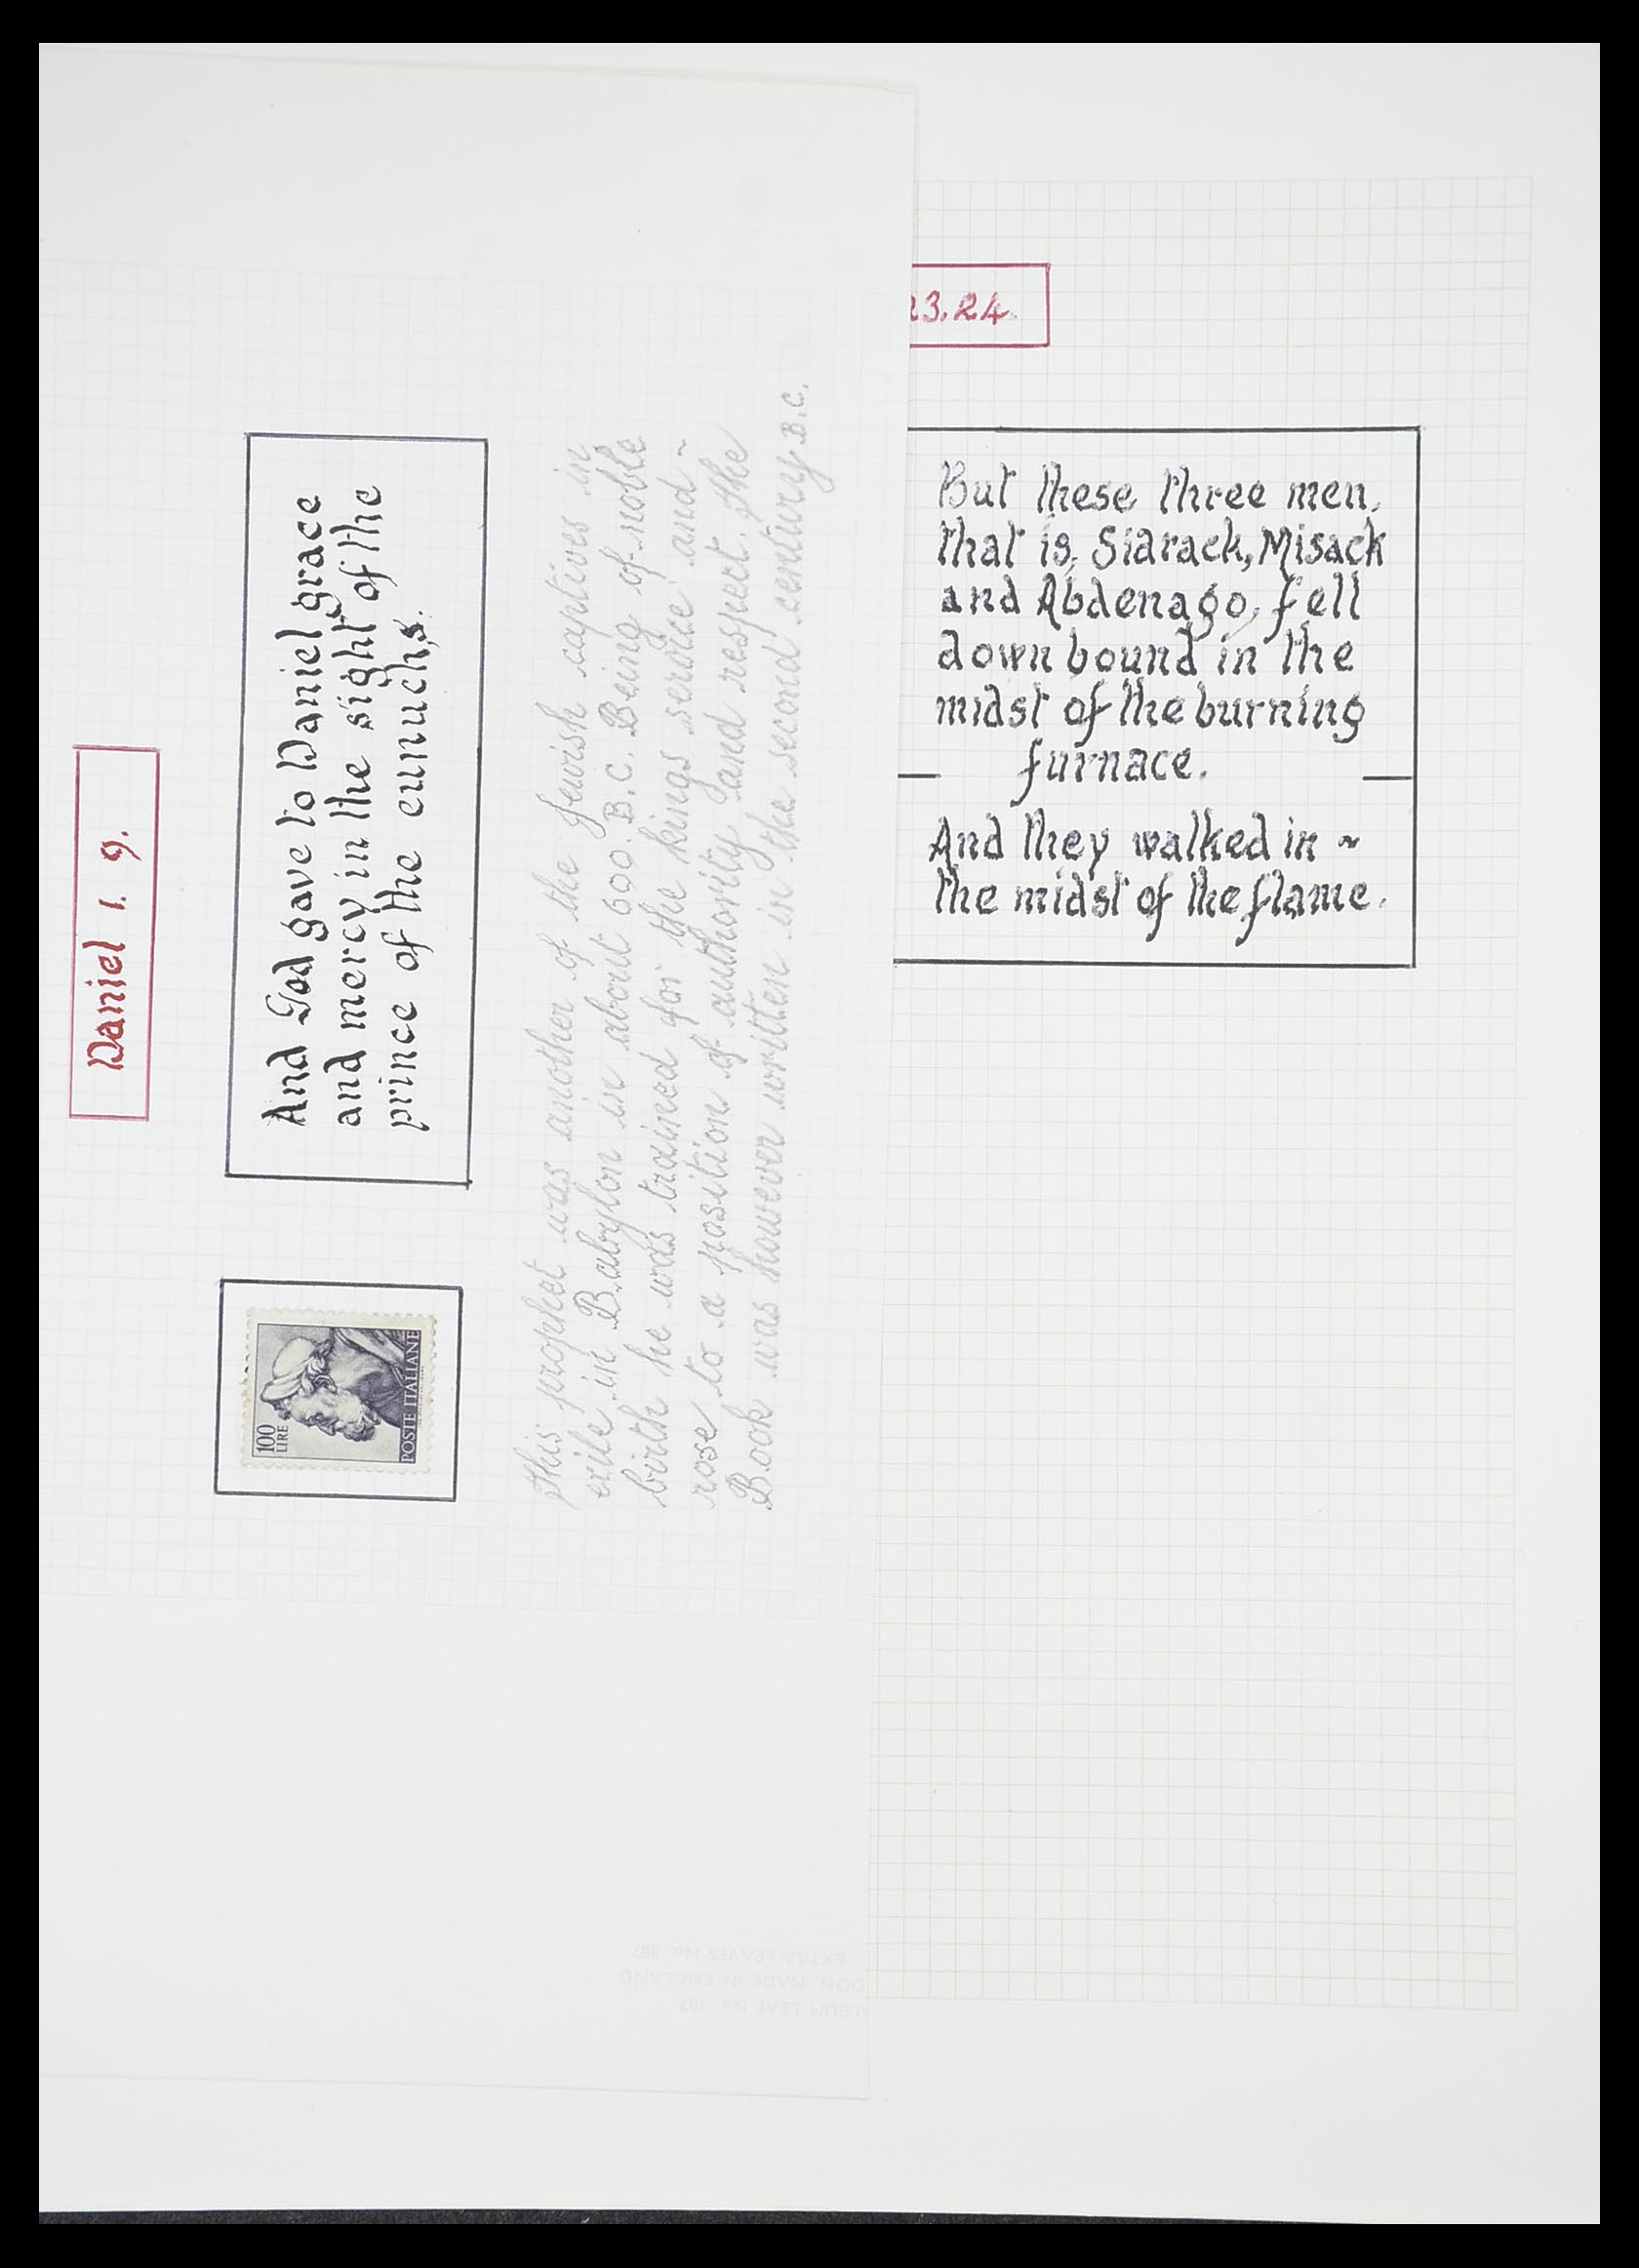 Daniel 1. 9.
And God gave to Daniel grace
and mercy in the sight of the
prince of the eunuchs.
100
LIRE
POSTE ITALIANE
This prophet was another of the Jewish captives in
exile in Babylon in about 600. B.C. Being of noble
birth he was trained for the kings service and ~
rose to a position of authority and respect. The
Book was however written in the second century B.C.
23.24.
But these three men,
that is, Sidrack, Misack
and Abdenago, fell
down bound in the
midst of the burning
furnace.
And they walked in ~
the midst of the flame.
EXTRA LEAVES No. 387
DON. MADE IN ENGLAND
LBUM LEAF No. 387